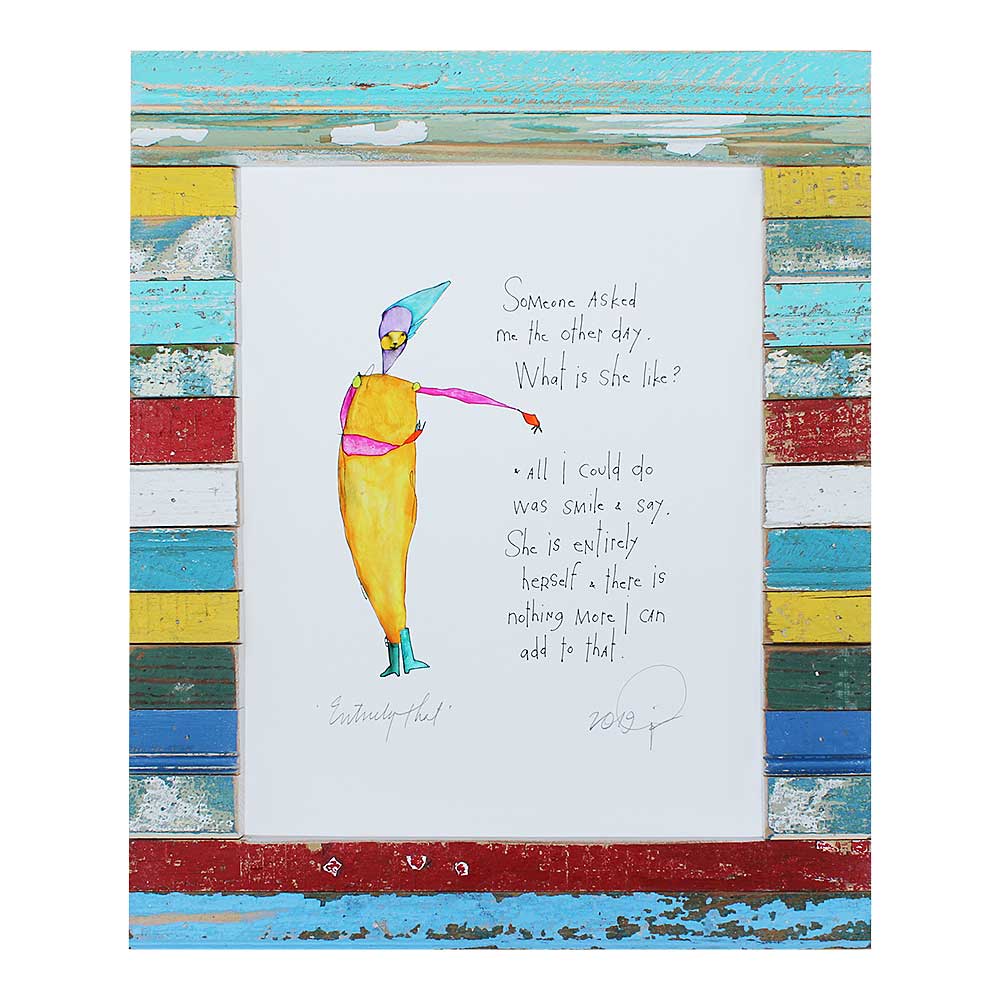 Someone asked
me the other day.
What is she like?
& all i could do
was smile & say.
She is entirely
herself & there is
nothing more I can
add to that.
'Entirely that'
2019